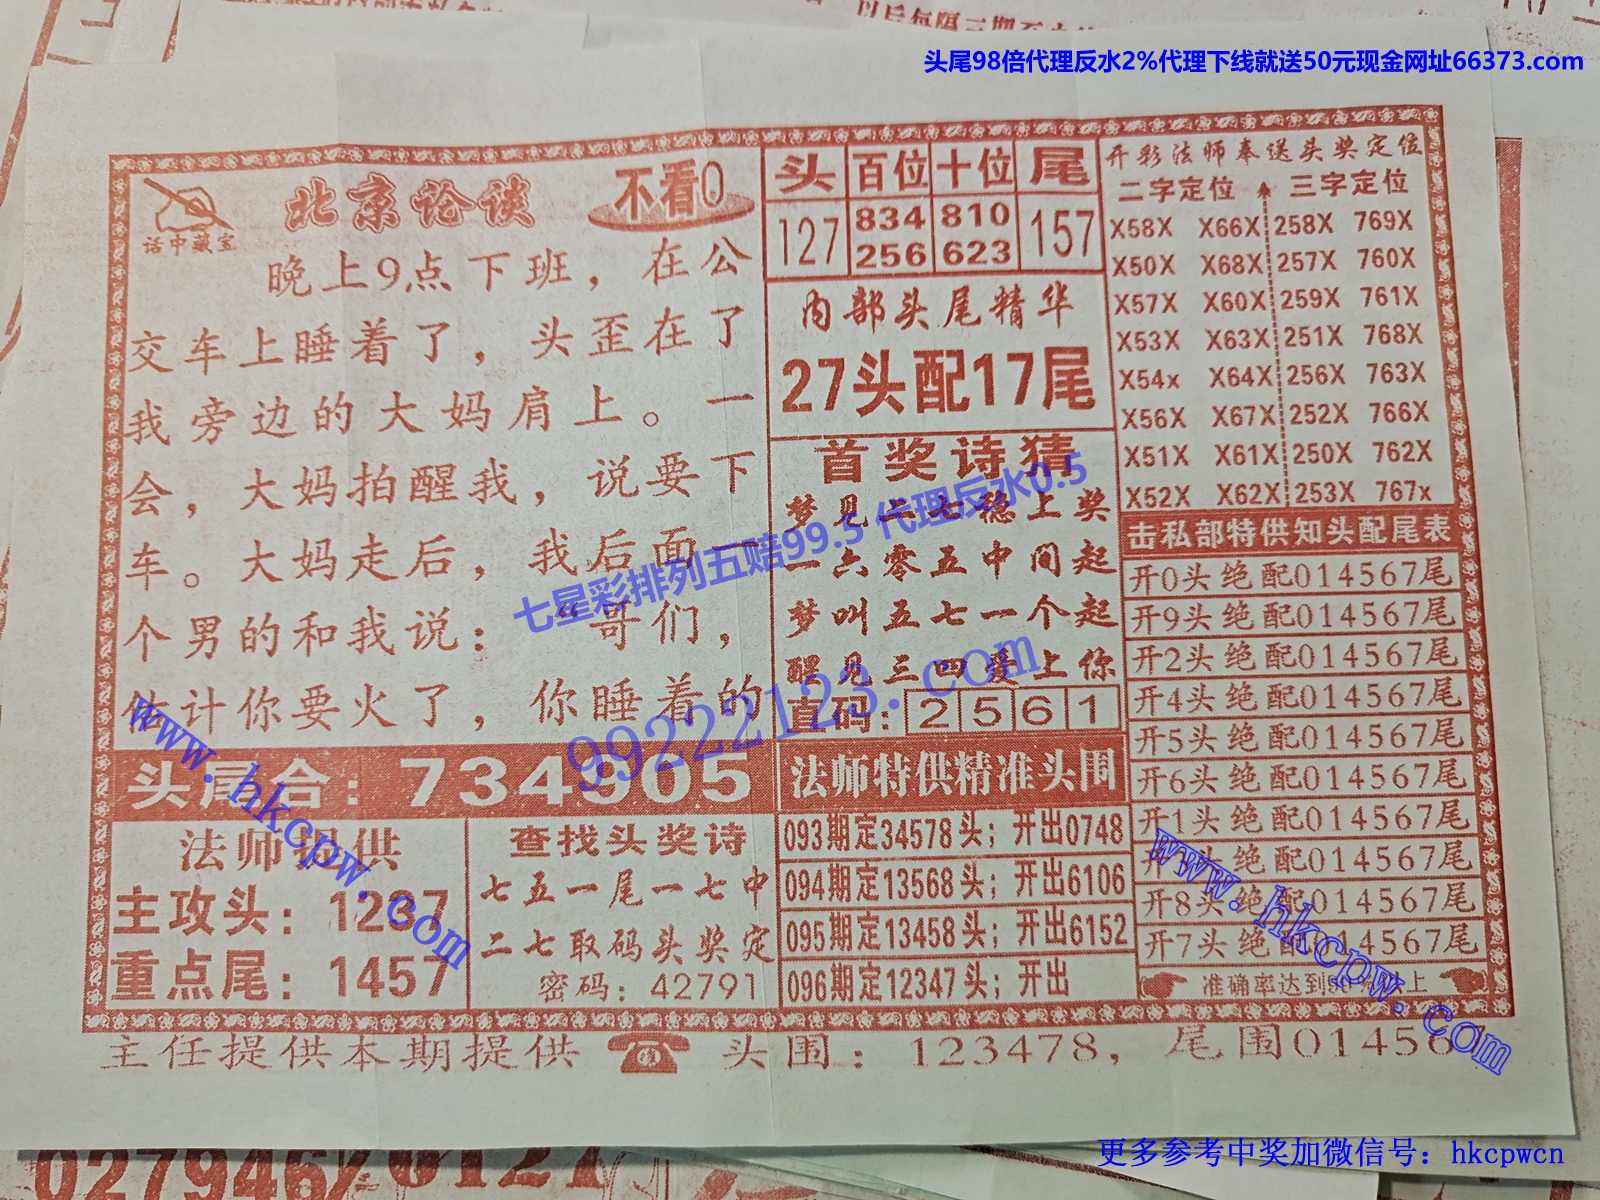 头尾98倍代理反水2%代理下线就送50元现金网址66373.com
北京论谈 不看0
话中藏宝
晚上9点下班，在公
交车上睡着了，头歪在了
我旁边的大妈肩上。一
会，大妈拍醒我，说要下
车。大妈走后，我后面一
个男的和我说：“哥们，
估计你要火了，你睡着的
头尾合：734905
法师特供
主攻头：1237
重点尾：1457
查找头奖诗
七五一尾一七中
二七取码头奖定
密码：42791
头 百位 十位 尾
127 834 810 157
256 623
内部头尾精华
27头配17尾
首奖诗猜
梦见二七稳上奖
一六零五中间起
梦叫五七一个起
醒见三四爱上你
直码：2561
法师特供精准头围
093期定34578头；开出0748
094期定13568头；开出6106
095期定13458头；开出6152
096期定12347头；开出
开彩法师奉送头奖定位
二字定位 三字定位
X58X X66X 258X 769X
X50X X68X 257X 760X
X57X X60X 259X 761X
X53X X63X 251X 768X
X54x X64X 256X 763X
X56X X67X 252X 766X
X51X X61X 250X 762X
X52X X62X 253X 767x
击私部特供知头配尾表
开0头绝配014567尾
开9头绝配014567尾
开2头绝配014567尾
开4头绝配014567尾
开5头绝配014567尾
开6头绝配014567尾
开1头绝配014567尾
开 头绝配014567尾
开8头绝配014567尾
开7头绝配014567尾
准确率达到 以上
主任提供本期提供 头围：123478，尾围01456
七星彩排列五赔99.5 代理反水0.5
99222123.com
www.hkcpw.com
www.hkcpw.com
更多参考中奖加微信号：hkcpwcn